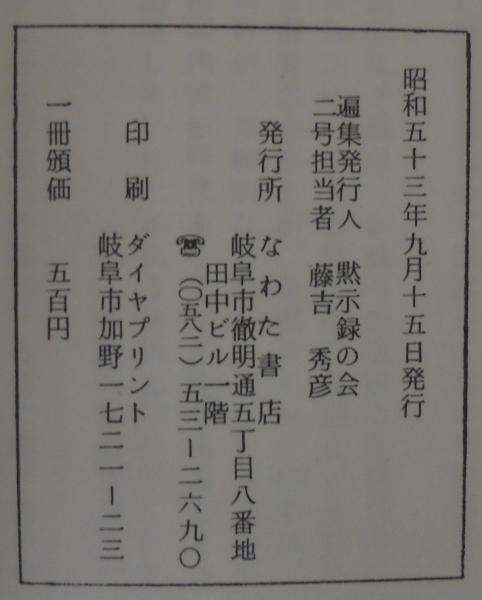 昭和五十三年九月十五日発行
遍集発行人 黙示録の会
二号担当者 藤吉 秀彦
発行所 なわた書店
岐阜市徹明通五丁目八番地
田中ビル一階
☎ (〇五八二) 五三ー二六九〇
印刷 ダイヤプリント
岐阜市加野一七二一ー二三
一冊頒価 五百円